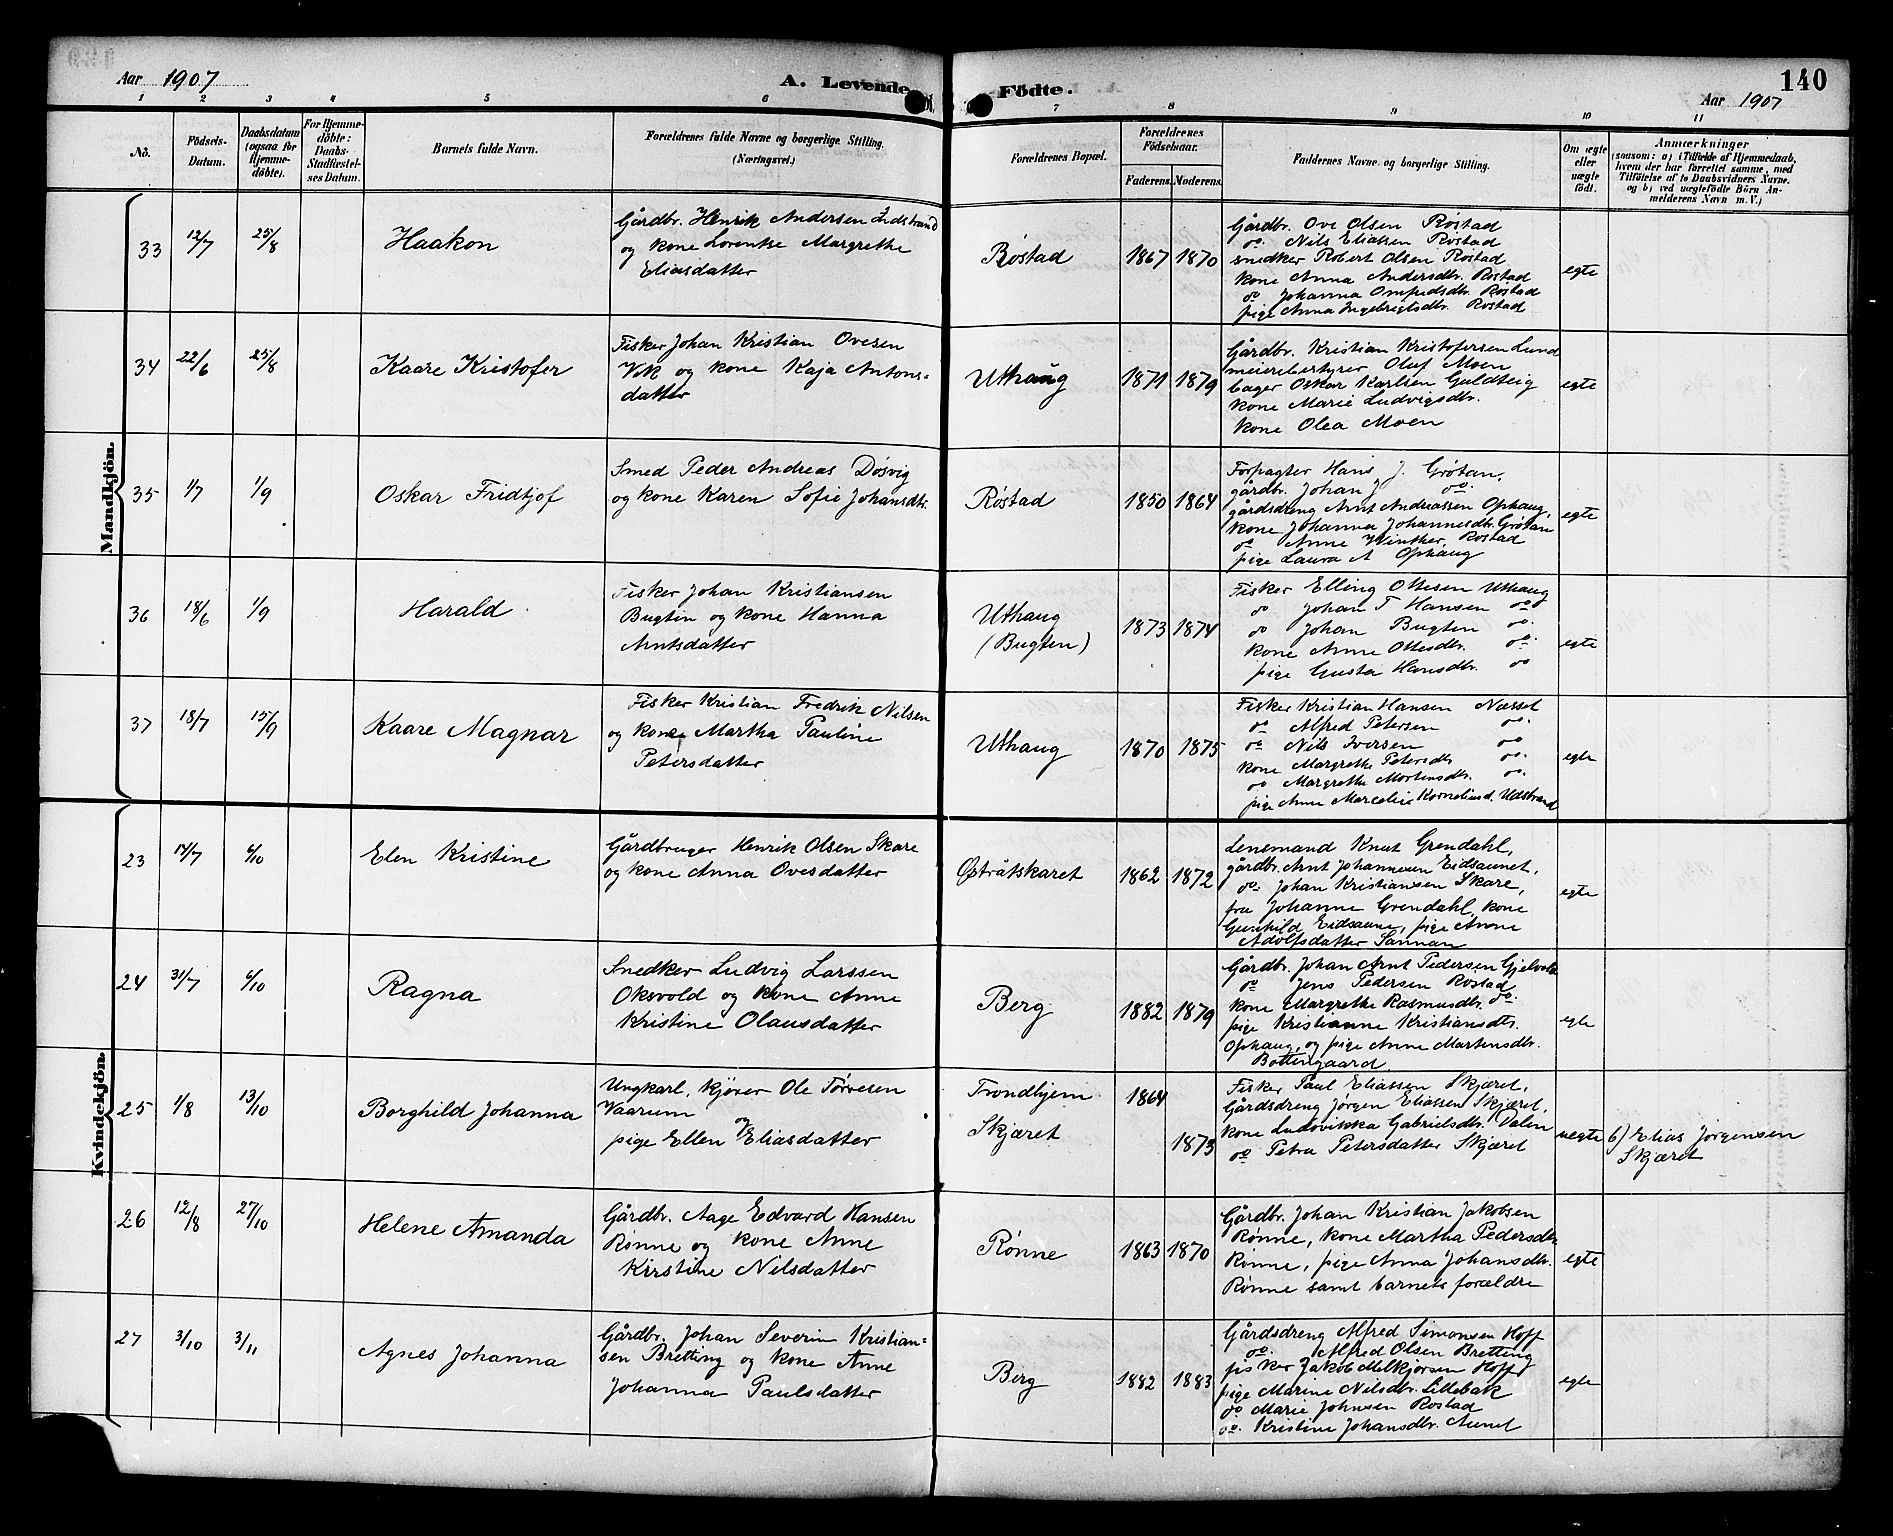 Aar 1907
A. Levende Födte.
140
Aar 1907
1 2 3 4 5 6 7 8 9 10 11
No.
Födsels-
Datum.
Daabsdatum
(ogsaa for
Hjemme-
döbte).
For Hjemme-
döbte:
Daabs-
Stadfæstel-
ses Datum.
Barnets fulde Navn.
Forældrenes fulde Navne og borgerlige Stilling.
(Næringsvei.)
Forældrenes Bopæl.
Forældrenes
Födselsaar.
Faderens. Moderens.
Faddernes Navne og borgerlige Stilling.
Om ægte
eller
uægte
födt.
Anmærkninger
(saasom: a) i Tilfælde af Hjemmedaab,
hvem der har forrettet samme, med
Tilföielse af to Daabsvidners Navne.
og b) ved uægtefödte Börn An-
melderens Navn m. V.)
Mandkjön.
33 12/7 25/8
Haakon
Gårdbr. Henrik Andersen Indstrand
og kone Lorentse Margrethe
Eliasdatter
Røstad
1867 1870
Gårdbr. Ove Olsen Røstad
do. Nils Eliassen Røstad
snedker Robert Olsen Røstad
kone Anna Andersdtr. Røstad
do Johanna Omundsdtr. Røstad
pige Anna Ingebrigtsdtr. Røstad
egte
34 22/6 25/8
Kaare Kristofer
Fisker Johan Kristian Ovesen
Vik og kone Kaja Antons-
datter
Uthaug
1871 1879
Gårdbr. Kristian Kristofersen Lund
meieribestyrer Oluf Moen
bager Oskar Karlsen Guldteig
kone Marie Ludvigsdtr.
kone Olea Moen
egte
35 1/7 1/9
Oskar Fridtjof
Smed Peder Andreas Døsvig
og kone Karen Sofie Johansdtr.
Røstad
1850 1864
Forpagter Hans J. Grøtan,
gårdbr. Johan J. do.
gårdsdreng Arnt Andreassen Ophaug,
kone Johanna Johannesdtr. Grøtan
do Anne Winther, Røstad
pige Laura A Ophaug
egte
36 18/6 1/9
Harald
Fisker Johan Kristiansen
Bugtin og kone Hanna
Arntsdatter
Uthaug
(Bugten)
1873 1874
Fisker Elling Ottesen Uthaug
do Johan T Hansen do
do Johan Bugten do
kone Anne Ottesdtr. do.
pige Gusta Hansdtr. do
egte
37 18/7 15/9
Kaare Magnar
Fisker Kristian Fredrik Nilsen
og kone Martha Pauline
Petersdatter
Uthaug
1870 1875
Fisker Kristian Hansen Næsset
do Alfred Petersen do.
do Nils Iversen do
kone Margrethe Petersdtr do.
do Margrethe Mortensdtr. do.
pige Anne Marcelie Korneliusd. Udstrand
egte
Kvindekjön.
23 14/7 6/10
Elen Kristine
Gårdbruger Henrik Olsen Skare
og kone Anna Ovesdatter
Østråtskaret
1862 1872
Lensmand Knut Grendahl,
gårdbr. Arnt Johannesen Eidsaunet,
do. Johan Kristiansen Skare,
fru Johanne Grendahl, kone
Gunhild Eidsaune, pige Anne
Adolfsdatter Sannan
egte
24 31/7 6/10
Ragna
Snedker Ludvig Larssen
Oksvold og kone Anne
Kristine Olausdatter
Berg
1882 1879
Gårdbr. Johan Arnt Pedersen Gjelvold
do. Jens Pedersen Røstad
kone Margrethe Rasmusdtr. do.
pige Kristianne Kristiansdtr.
Ophaug, og pige Anne Martensdtr.
Bottengaard.
egte
25 1/8 13/10
Borghild Johanna
Ungkarl, kjører Ole Tørresen
Vaarum
og
pige Ellen Eliasdatter
Trondhjem
Skjæret
1864
1873
Fisker Paul Eliassen Skjæret,
Gårdsdreng Jørgen Eliassen Skjæret,
kone Ludovikka Gabrielsdtr. Dalen
do Petra Petersdatter Skjæret
uegte
b) Elias Jørgensen
Skjæret
26 12/8 27/10
Helene Amanda
Gårdbr. Aage Edvard Hansen
Rønne og kone Anne
Kirstine Nilsdatter
Rønne
1863 1870
Gårdbr. Johan Kristian Jakobsen
Rønne, kone Martha Pedersdtr.
Rønne, pige Anna Johansdtr.
Rønne samt barnets forældre
egte
27 3/10 3/11
Agnes Johanna
Gårdbr. Johan Severin Kristian-
sen Bretting og kone Anne
Johanna Paulsdatter
Berg
1882 1883
Gårdsdreng Alfred Simonsen Hoff
do. Alfred Olsen Bretting
fisker Jakob Melkjørsen Hoff
pige Marine Nilsdtr. Lillebak
do Marie Johnsen Røstad
do. Kristine Johansdtr. Aunet
egte